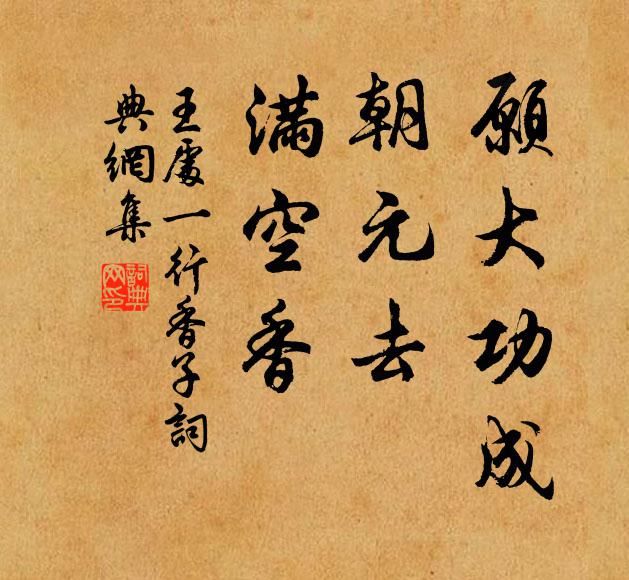 願大功成
朝元去
滿空香
王處一行香子詞
典網集
詞典網印